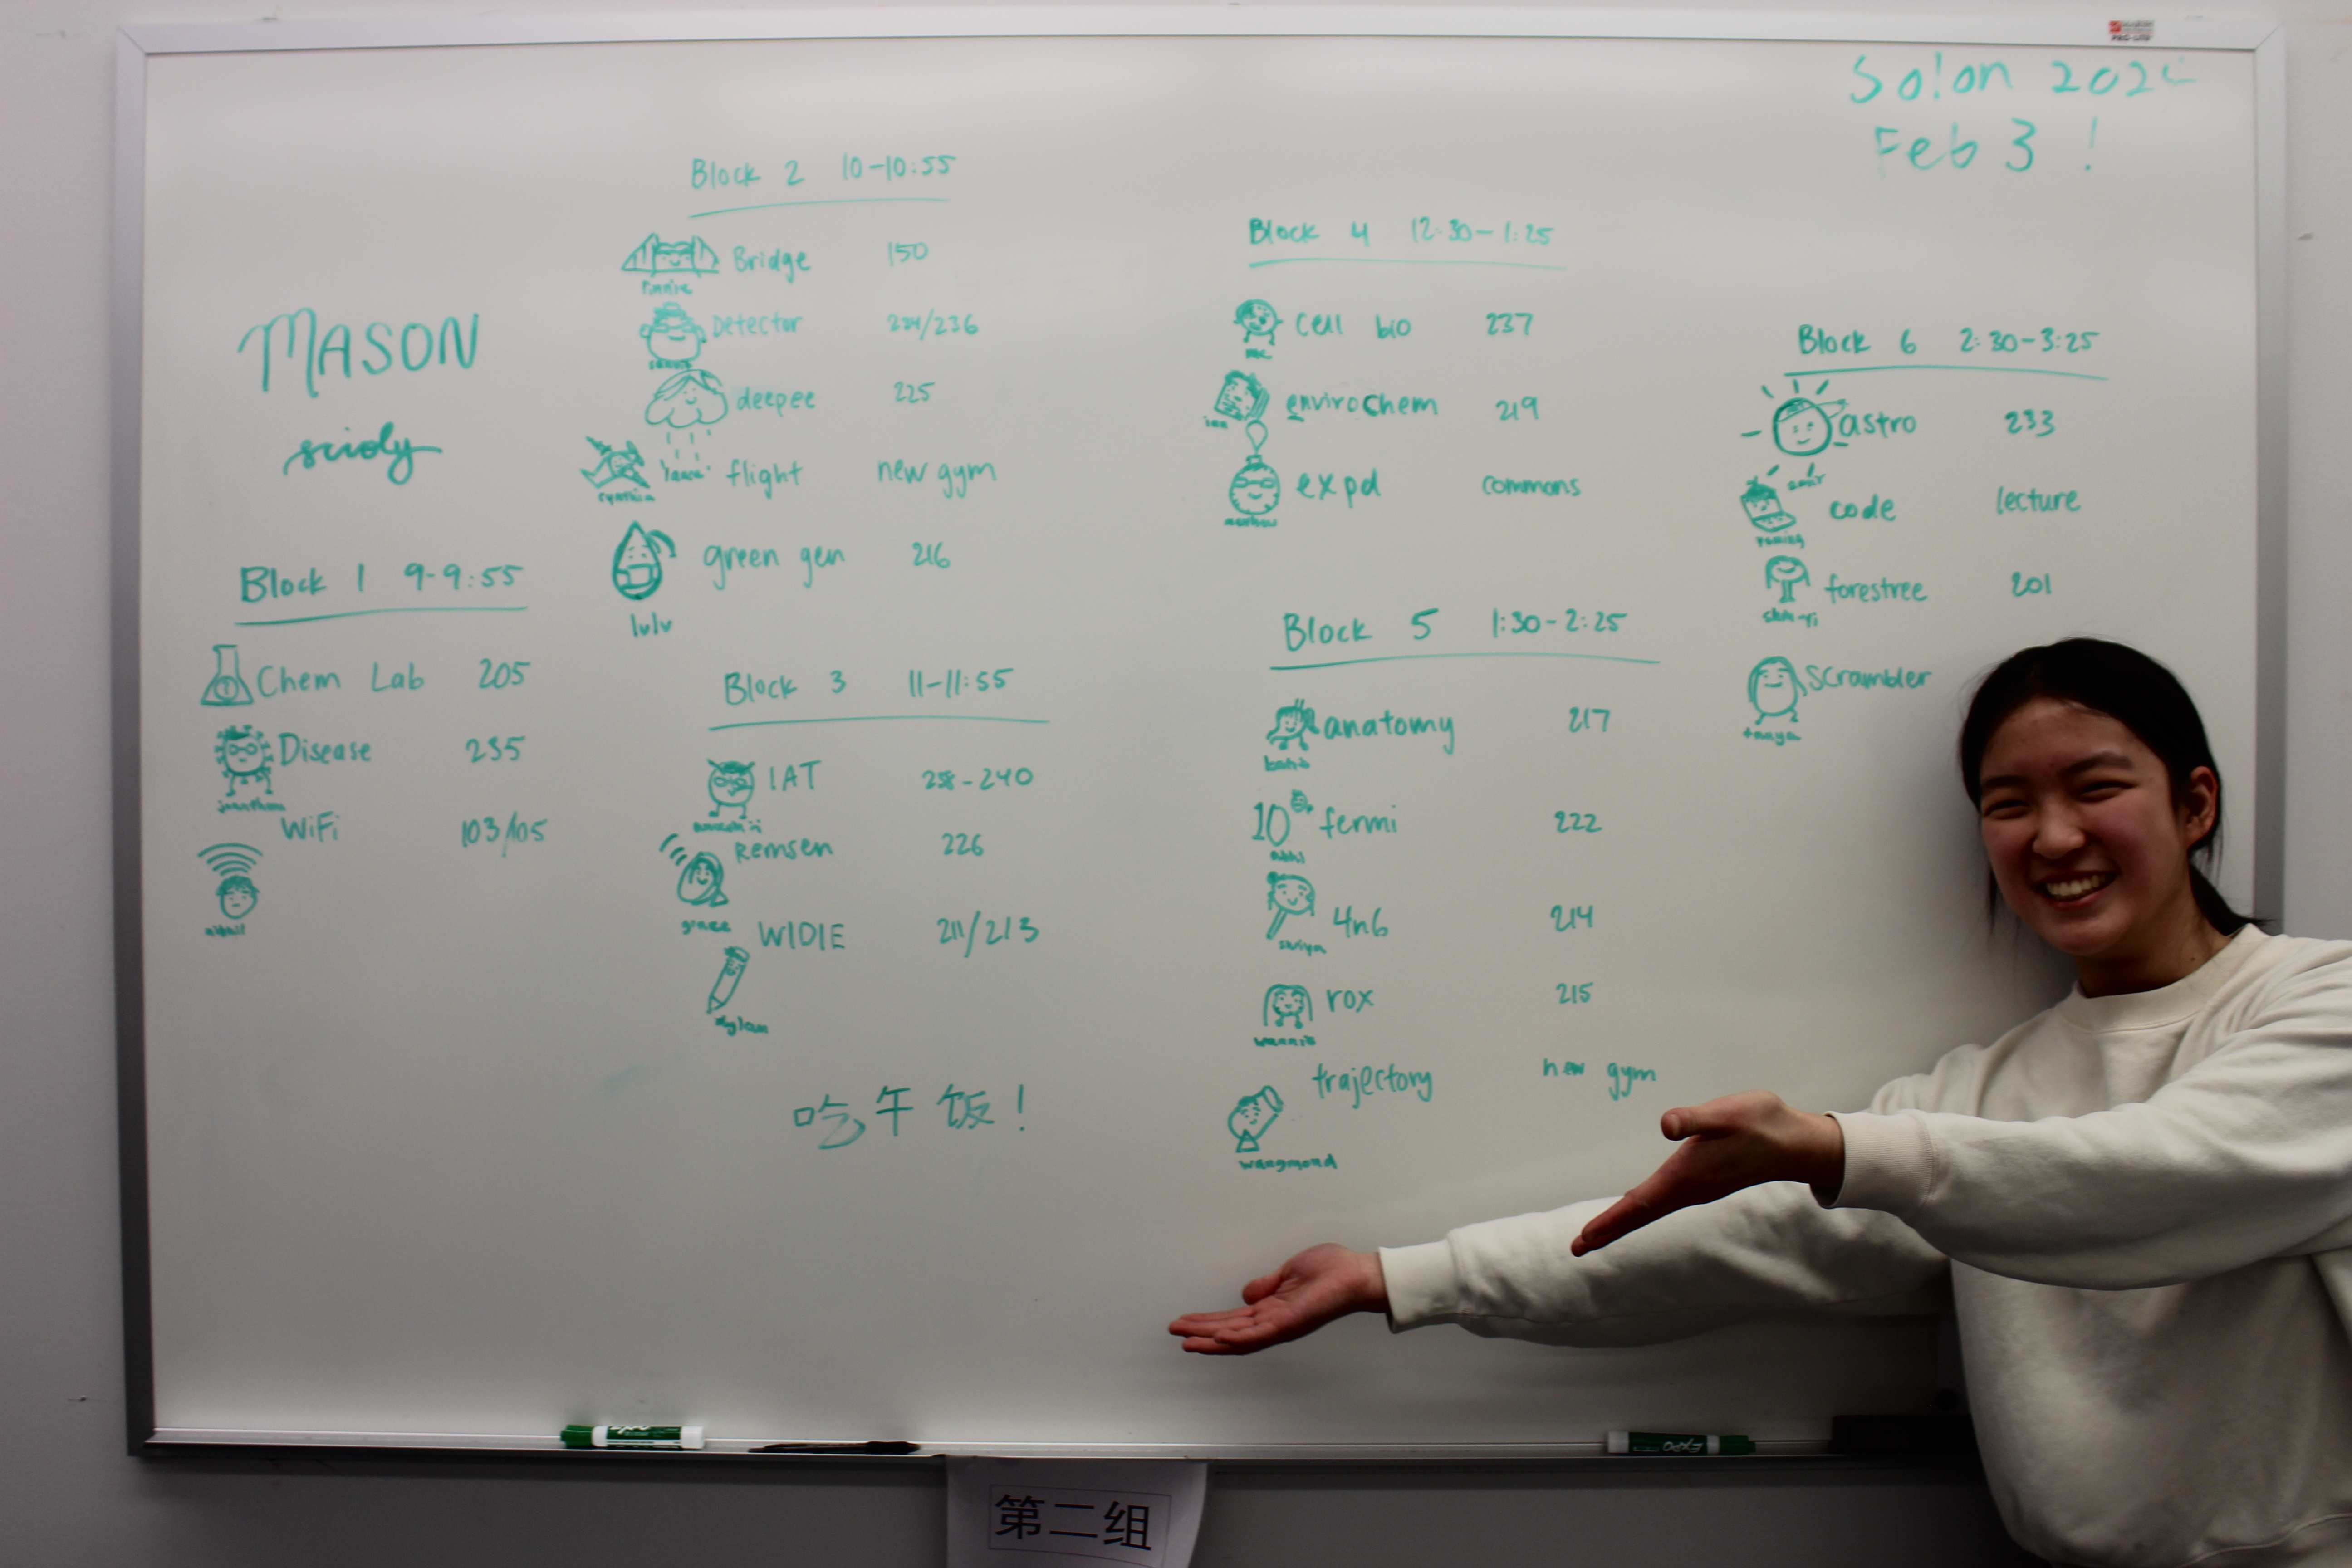 Solon 202
Feb 3 !
MASON
scioly
Block 1 9-9:55
Chem Lab 205
Disease 235
jonathan
WiFi 103/105
nikhil
Block 2 10-10:55
Bridge 150
Detector 234/236
deepee 225
flight new gym
cynthia
green gen 216
lulu
Block 3 11-11:55
IAT 238-240
Remsen 226
grace
WIDIE 211/213
dylan
吃午饭!
Block 4 12:30-1:25
cell bio 237
envirochem 219
ian
expd commons
Block 5 1:30-2:25
anatomy 217
10 fermi 222
4n6 214
shriya
rox 215
trajectory new gym
wangmond
Block 6 2:30-3:25
astro 233
code lecture
forestree 201
Scrambler
tanya
EXPO
第二组